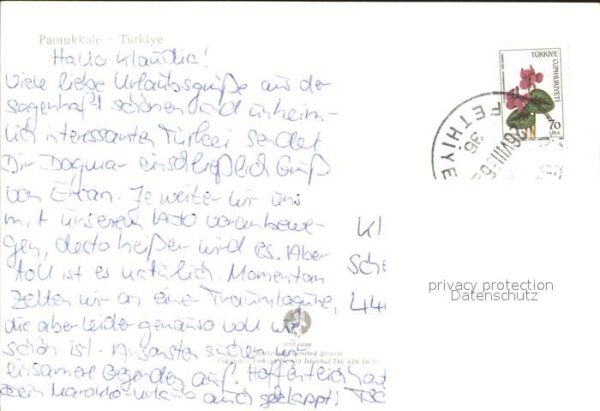 Pamukkale – Türkiye
Hallo Klaudia!
Viele liebe Urlaubsgrüße aus der
sagenhaft schönen und unheim-
lich interessanten Türkei sendet
Dir Dagmar einschließlich Gruß
von Ercan. Je weiter wir uns
mit unserem Auto voranbewe-
gen, desto heißer wird es. Aber
toll ist es natürlich. Momentan
zelten wir an einer Traumlagune,
die aber leider genauso voll wie
schön ist. Ansonsten suchen wir
einsame Gegenden auf. Hoffentlich hat
Dein Marokko-Urlaub auch geklappt!
Kl
Sch
44
TÜRKİYE
CUMHURİYETİ
70
LIRA
FETHİYE
privacy protection
Datenschutz